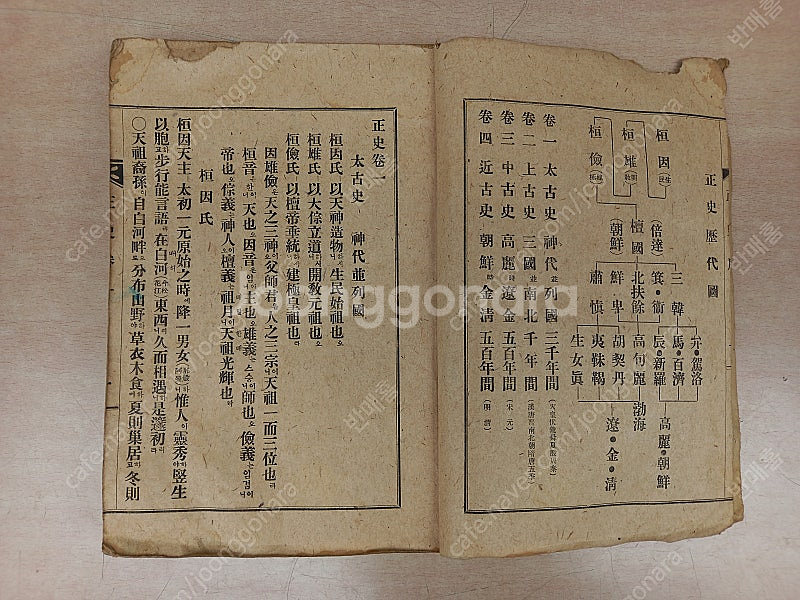 正史歷代圖
桓因
桓雄
桓儉
(倍達)
檀國
(朝鮮)
三韓
箕•衛
北扶餘
鮮•卑
肅愼
弁•駕洛
馬•百濟
辰•新羅
高句麗
胡契丹
夷靺鞨
生女眞
渤海
高麗•朝鮮
遼•金•淸
卷一 太古史 神代並列國 三千年間
卷二 上古史 三國並南北 千年間
卷三 中古史 高麗時遼金 五百年間 (宋元)
卷四 近古史 朝鮮時金淸 五百年間 (明淸)
正史卷一
太古史 神代並列國
桓因氏以天神造物하시니生民始祖也오
桓雄氏以大倧立道하시니開敎元祖也오
桓儉氏以檀帝垂統하시니建極皇祖也라
因雄儉은天之三神이오父師君은人之三宗이니天祖一而三位也라
桓音은한이니天也오因音은이니也오雄義는스승이니師也오儉義는임검이니
帝也오倧義는神人이오檀義는祖이니天祖光輝也라
桓因氏
桓因天主太初一元原始之時에降一男女하시니惟人이靈秀하야竪生
以胞하고步行能言語라在白河東西하야久而相遇하니是謂初라
○天祖裔孫이自白河畔으로分布山野하야草衣木食에夏則巢居하고冬則
cafe.naver.com/joonggonara
반매홀